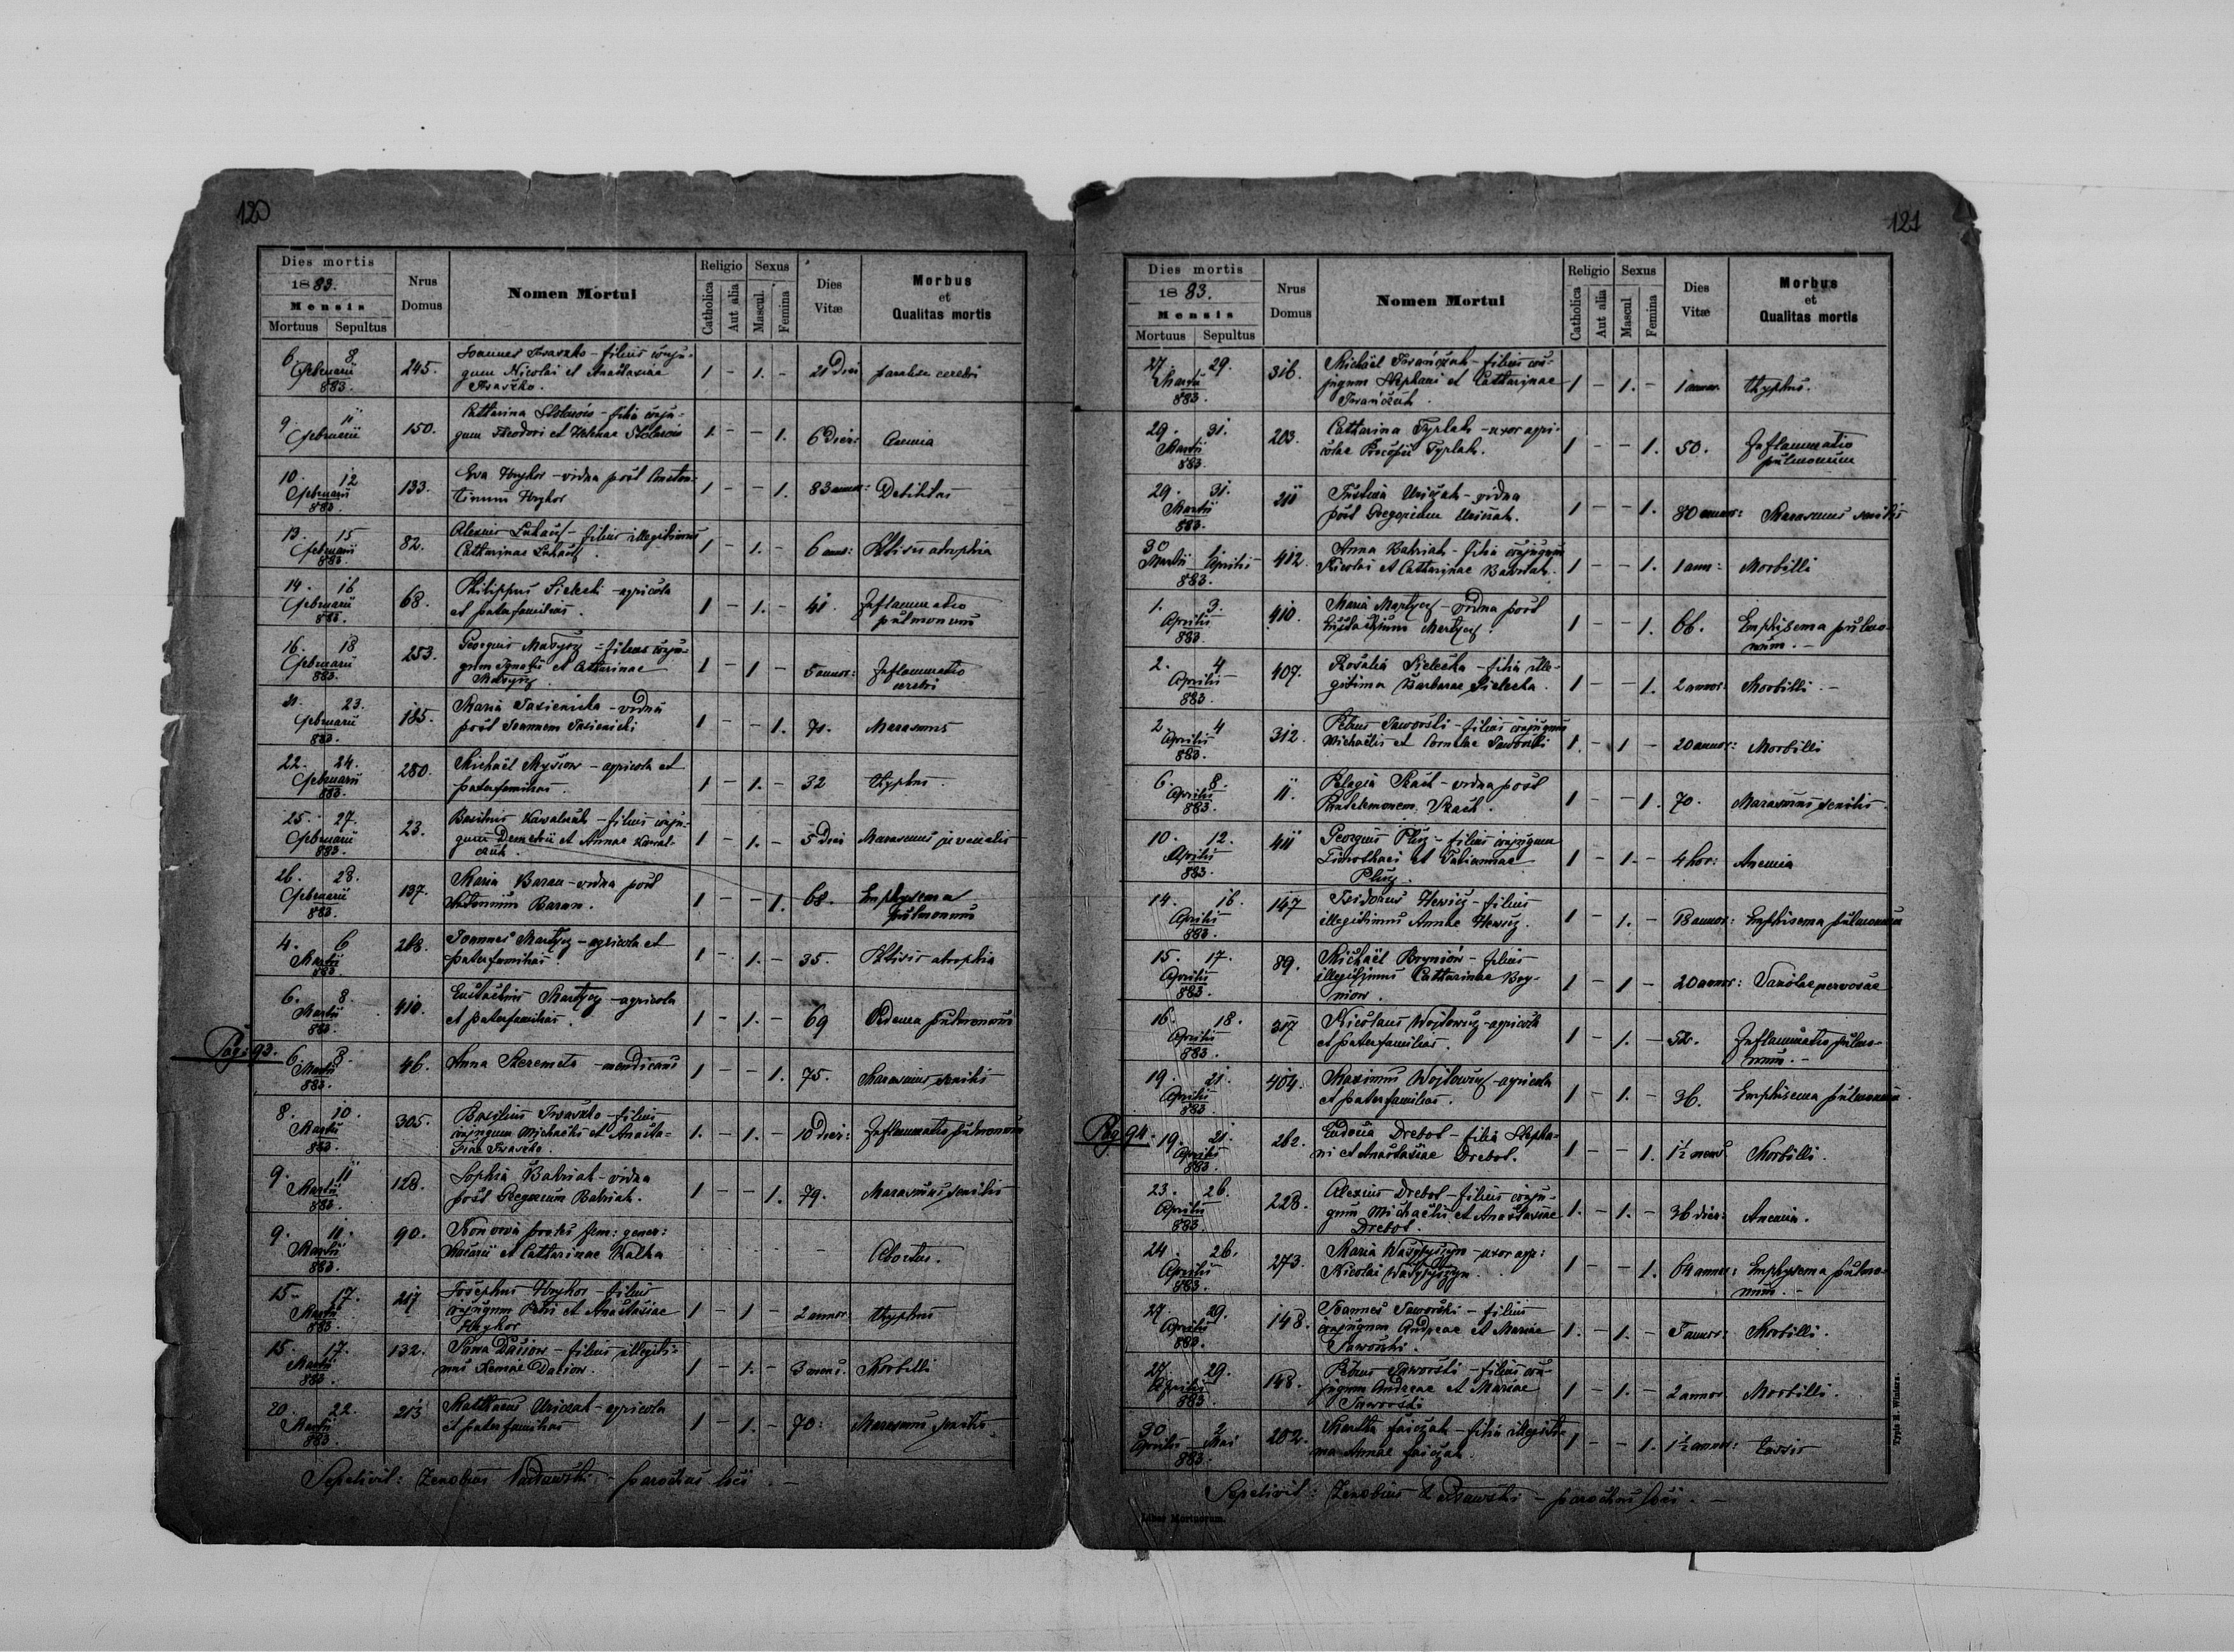 120
Dies mortis
1883.
Mensis
Mortuus Sepultus
Nrus Domus
Nomen Mortui
Religio
Catholica Aut alia
Sexus
Mascul. Femina
Dies Vitæ
Morbus et Qualitas mortis
6. 8. Februarii 883. 245. Joannes Iwaszko - filius conju-
gum Nicolai et Anastasiae
Iwaszko. 1 - 1. - 21 Dies paralisis cerebri
9. 11 Februarii 150. Catharina - filia conju-
gum Theodori et Helenae 1. - - 1. 6 dier: Anemia
10. 12 Februarii 883. 133. Eva Hryhor - vidua post Constan-
tinum Hryhor 1 - - 1. 83 annor: Debilitas
13. 15 Februarii 883. 82. Alexius - filius illegitimus
Catharinae 1 - 1. - 6 ann: Phtisis atrophia
14. 16 Februarii 883. 68. Philippus Sielecki - agricola
et paterfamilias. 1 - 1. - 41. Inflammatio
pulmonum
16. 18 Februarii 883. 253. Georgius - filius conju-
gum Ignatii et Catharinae
1 - 1 - 5 annor: Inflammatio
cerebri
21. 23. Februarii 883. 185. Maria Jasienicka - vidua
post Joannem Jasienicki 1 - - 1. 71. Marasmus
22. 24. Februarii 883. 280. Michaël Mysiow - agricola et
paterfamilias. 1 - 1. - 32 thyphus.
25. 27. Februarii 883. 23. Basilius Kowalczuk - filius conju-
gum Demetrii et Annae Kowal-
czuk. 1 - 1. - 5 dies Marasmus juvenilis
26. 28. Februarii 883. 137. Maria Baran - vidua post
Antonium Baran. 1 - - 1. 68. Emphysema
pulmonum
4. 6 Martii 883. 268. Joannes Martycz - agricola et
paterfamilias. 1 - 1. - 35. Phtisis atrophia
6. 8. Martii 883. 410. Eustachius Martycz - agricola
et paterfamilias. 1 - 1. - 69 Oedema pulmonum
Pag: 93.
6. 8. Martii 883. 46. Anna Szeremeta - mendicans 1 - - 1. 75. Marasmus senilis
8. 10. Martii 883. 305. Basilius Iwaszko - filius
conjugum Michaëlis et Anasta-
siae Iwaszko. 1. - 1. - 10 dier: Inflammatio pulmonum
9. 11 Martii 883. 128. Sophia Batriak - vidua
post Gregorium Batriak. 1 - - 1. 79. Marasmus senilis
9. 11. Martii 883. 90. fem: gener:
et Catharinae Kalka - Abortus.
15. 17. Martii 883. 217 Josephus Hryhor - filius
conjugum Petri et Anastasiae
Hryhor 1 - 1 - 2 annor. thyphus
15. 17. Martii 883. 132. Dasiow - filius illegiti-
mus Dasiow. 1 - 1. - 3 mens. Morbilli
20. 22. Martii 883. 213 Matthaeus Uniczak - agricola
et paterfamilias 1 - 1. - 70. Marasmus senilis.
Sepelivit: Zenobius - parochus loci. -
121
Dies mortis
1883.
Mensis
Mortuus Sepultus
Nrus Domus
Nomen Mortui
Religio
Catholica Aut alia
Sexus
Mascul. Femina
Dies Vitæ
Morbus et Qualitas mortis
27. 29. Martii 883. 316. Michaël Iwańczak - filius con-
jugum Stephani et Catharinae
Iwańczak. 1 - 1. - 1 annor. thyphus.
29. 31. Martii 883. 203. Catharina Typlak - uxor agri-
colae Procopii Typlak. 1 - - 1. 50. Inflammatio
pulmonum
29. 31. Martii 883. 211 Justina Uniczak - vidua
post Gregorium Uniczak. 1 - - 1. 80 annor: Marasmus senilis
30 Martii 1 Aprilis 883. 412. Anna Batriak - filia conjugum
Nicolai et Catharinae Batriak. 1 - - 1. 1 ann: Morbilli
1. 3. Aprilis 883. 410. Maria Martycz - vidua post
Eustachium Martycz. 1 - - 1. 66. Emphisema pulmo-
num. -
2. 4 Aprilis 883. 407. Rosalia Sielecka - filia ille-
gitima Barbarae Sielecka. 1 - - 1. 2 annor: Morbilli. -
2 4 Aprilis 883. 312. Petrus Jaworski - filius conjugum
Michaëlis et Jaworski 1. - 1 - 20 annor: Morbilli
6. 8. Aprilis 883. 11. Pelagia - vidua post
Pantelemonem. 1 - - 1. 70. Marasmus senilis.
10. 12. Aprilis 883. 411 Georgius - filius conjugum
Timothaei et Tatiannae
1 - 1. - 4 hor: Anemia
14. 16. Aprilis 883. 147 Isidorus - filius
illegitimus Annae 1 - 1. - 18 annor: Emphisema pulmonum
15. 17. Aprilis 883. 89. Michaël Bryniów - filius
illegitimus Catharinae Bry-
niow. 1 - 1 - 20 annor:
16. 18. Aprilis 883. 317 Nicolaus Wojtowicz - agricola
et paterfamilias. 1 - 1. - Inflammatio pulmo-
num. -
19. 21. Aprilis 883. 404. Maximus Wojtowicz - agricola
et paterfamilias. 1 - 1. - 36. Emphisema pulmonum.
Pag 94.
19. 21. Aprilis 883. 262. Eudocia Drebot - filia Stepha-
ni et Anastasiae Drebot. 1 - - 1. 1½ mens Morbilli.
23. 26. Aprilis 883. 228. Alexius Drebot - filius conju-
gum Michaëlis et Anastasiae
Drebot. 1. - 1. - 36 dier: Anemia.
24. 26. Aprilis 883. 273. Maria Wasylyszyn - uxor agr:
Nicolai Wasylyszyn. 1 - - 1. 64 annor: Emphysema pulmo-
num. -
27. 29. Aprilis 883. 148. Joannes Jaworski - filius
conjugum Andreae et Mariae
Jaworski. 1. - 1. - 5 annor: Morbilli.
27. 29. Aprilis 883. 148. Petrus Jaworski - filius con-
jugum Andreae et Mariae
Jaworski 1 - 1. - 2 annor. Morbilli.
30. Aprilis 2 Mai 883. 202. Martha - filia illegiti-
ma Annae 1 - - 1. 1½ annor: tussis
Sepelivit: Zenobius - parochus loci. -
Liber Mortuorum.
Typis H. Winiarz.